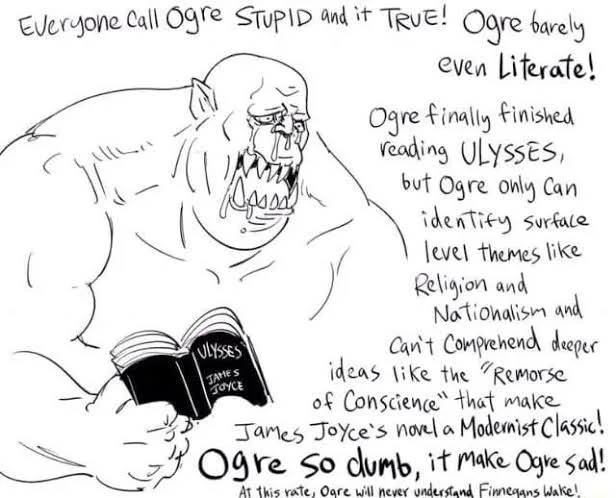 Everyone Call Ogre STUPID and it TRUE! Ogre barely
even Literate!
Ogre finally finished
reading ULYSSES,
but Ogre only Can
identify surface
level themes like
Religion and
Nationalism and
Can't Comprehend deeper
ideas like the "Remorse
of Conscience" that make
James Joyce's novel a Modernist Classic!
Ogre so dumb, it make Ogre sad!
At this rate, Ogre will never understand Finnegans Wake!
ULYSSES
JAMES
JOYCE